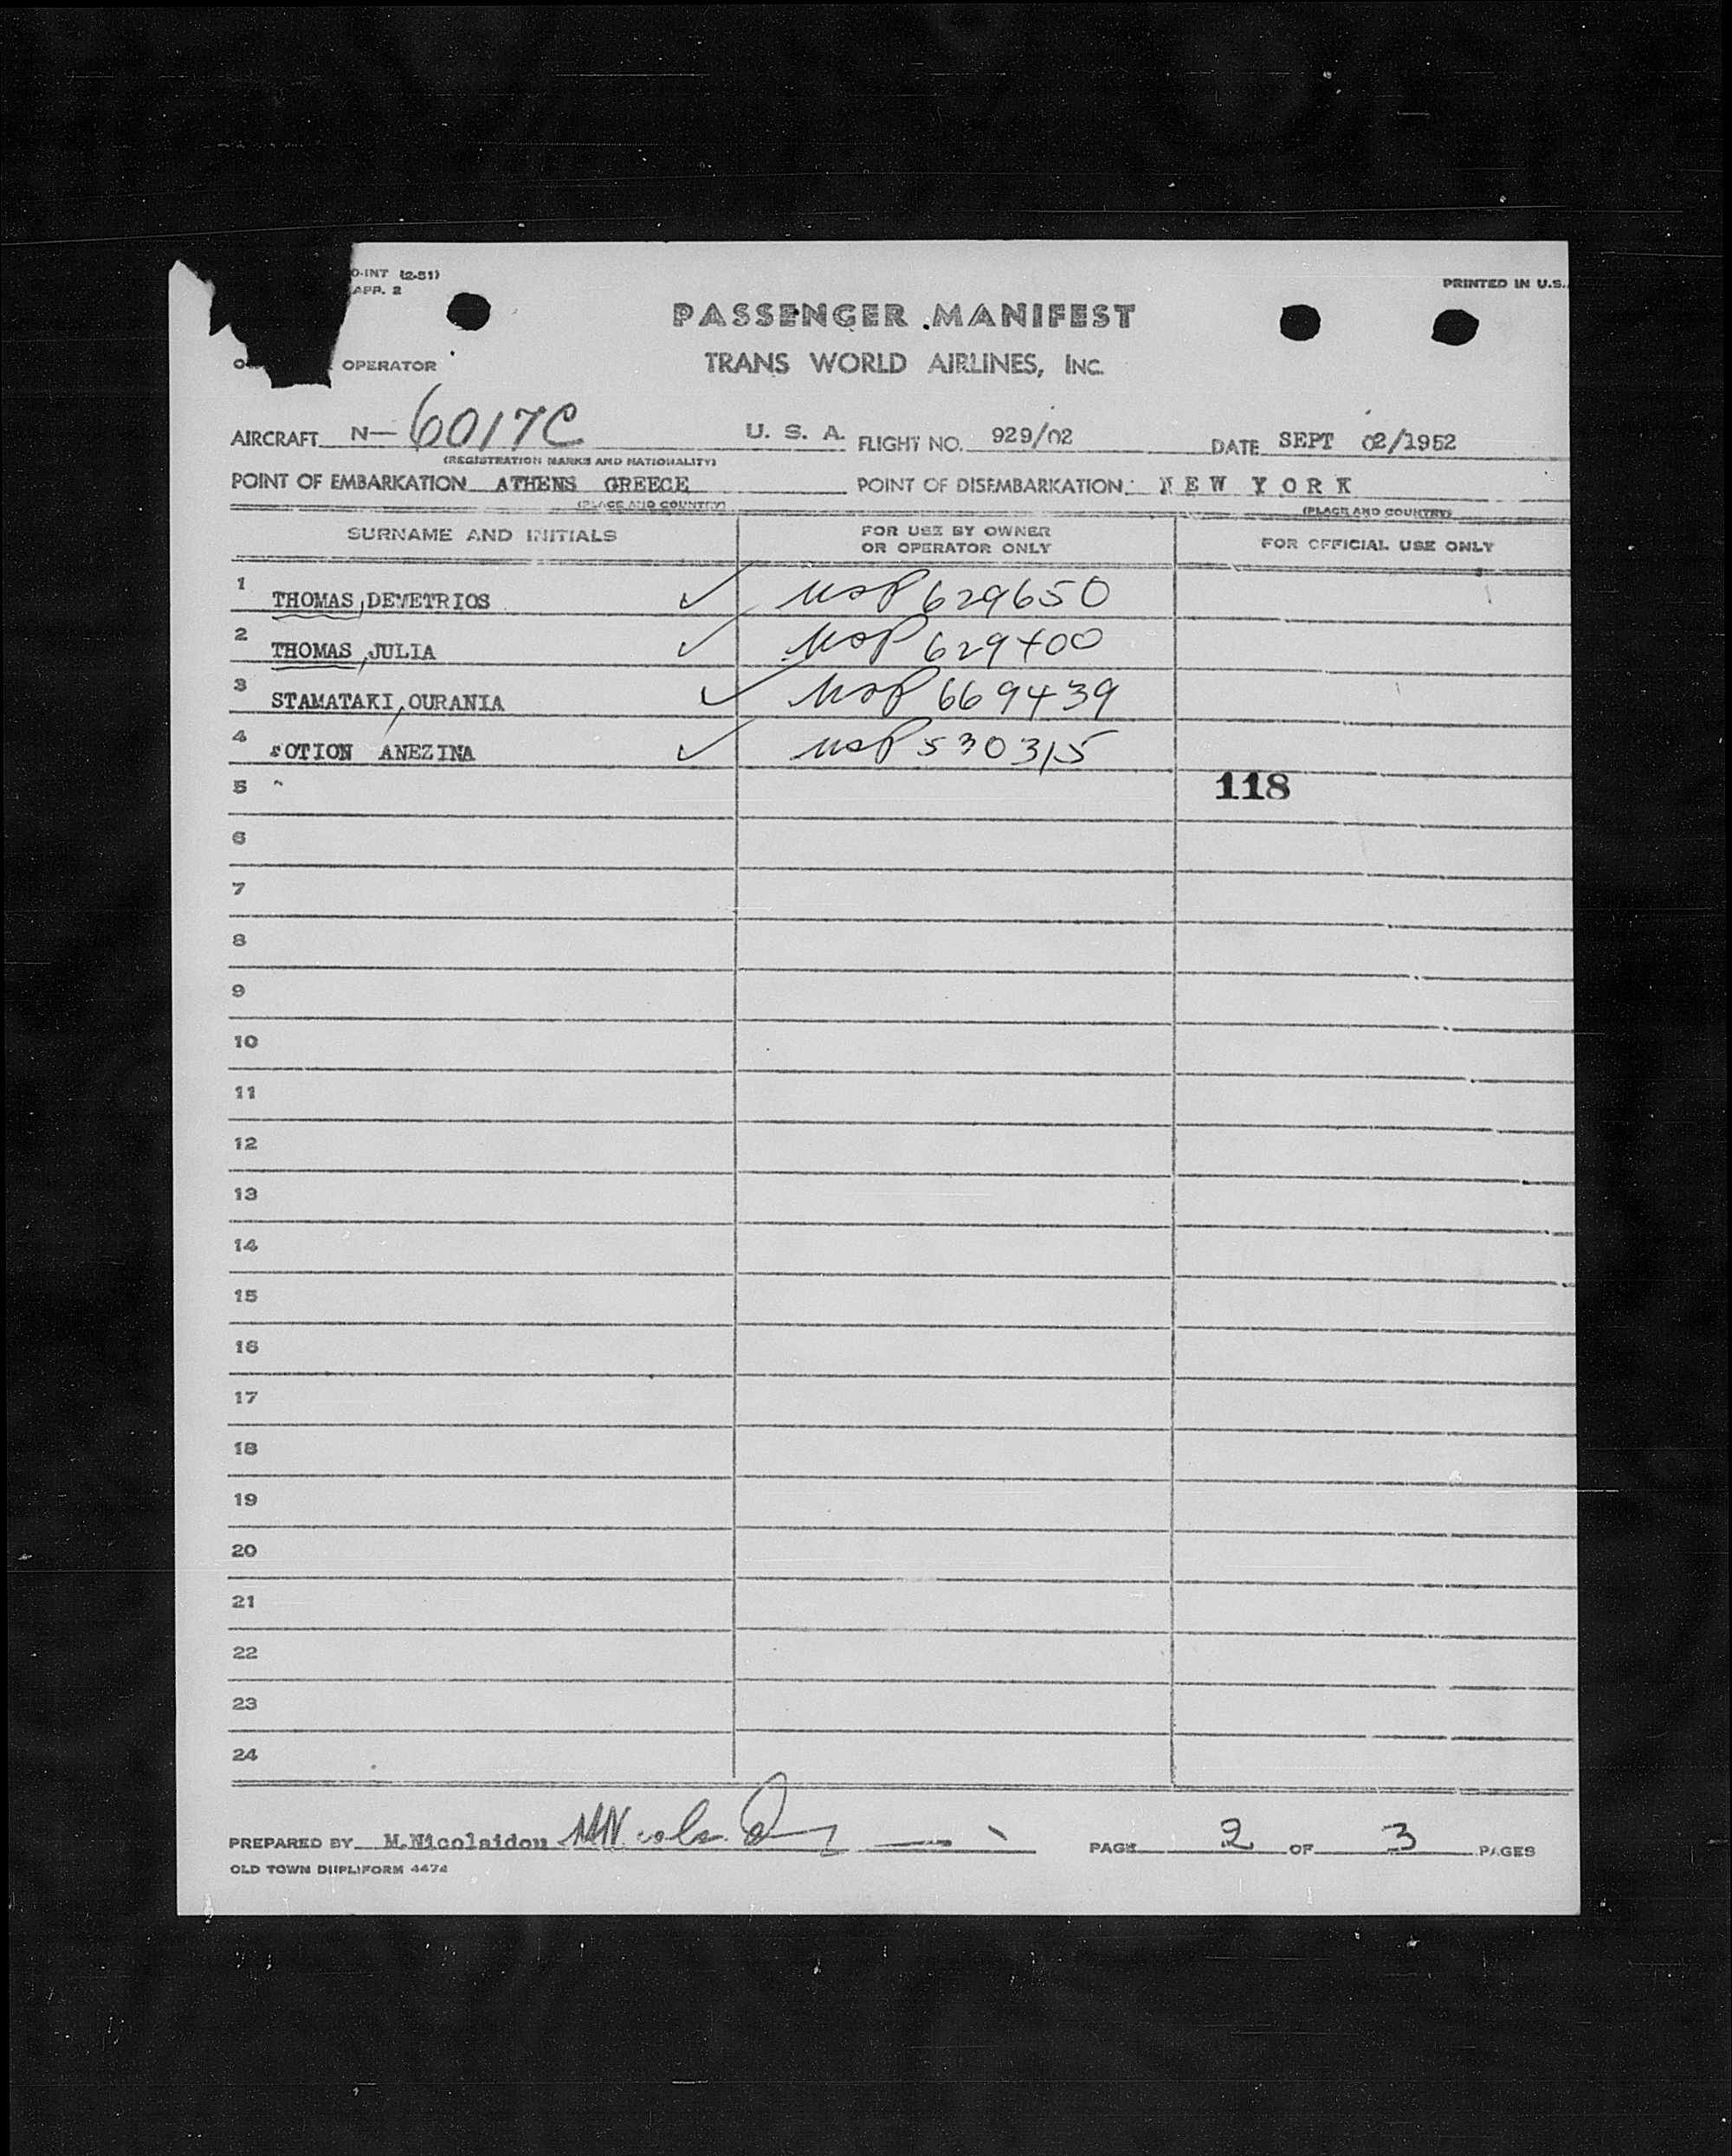 O-INT (2-51)
APP. 2
PRINTED IN U.S.
PASSENGER MANIFEST
OPERATOR
TRANS WORLD AIRLINES, INC.
AIRCRAFT N-6017C U. S. A. FLIGHT NO. 929/02 DATE SEPT 02/1952
(REGISTRATION MARKS AND NATIONALITY)
POINT OF EMBARKATION ATHENS GREECE POINT OF DISEMBARKATION: NEW YORK
(PLACE AND COUNTRY) (PLACE AND COUNTRY)
SURNAME AND INITIALS FOR USE BY OWNER OR OPERATOR ONLY FOR OFFICIAL USE ONLY
1 THOMAS, DEMETRIOS ✓ USP 629650
2 THOMAS, JULIA ✓ USP 629400
3 STAMATAKI, OURANIA ✓ USP 669439
4 FOTION ANEZINA ✓ USP 530315
5 118
6
7
8
9
10
11
12
13
14
15
16
17
18
19
20
21
22
23
24
PREPARED BY M.Nicolaidou PAGE 2 OF 3 PAGES
OLD TOWN DUPLIFORM 4474